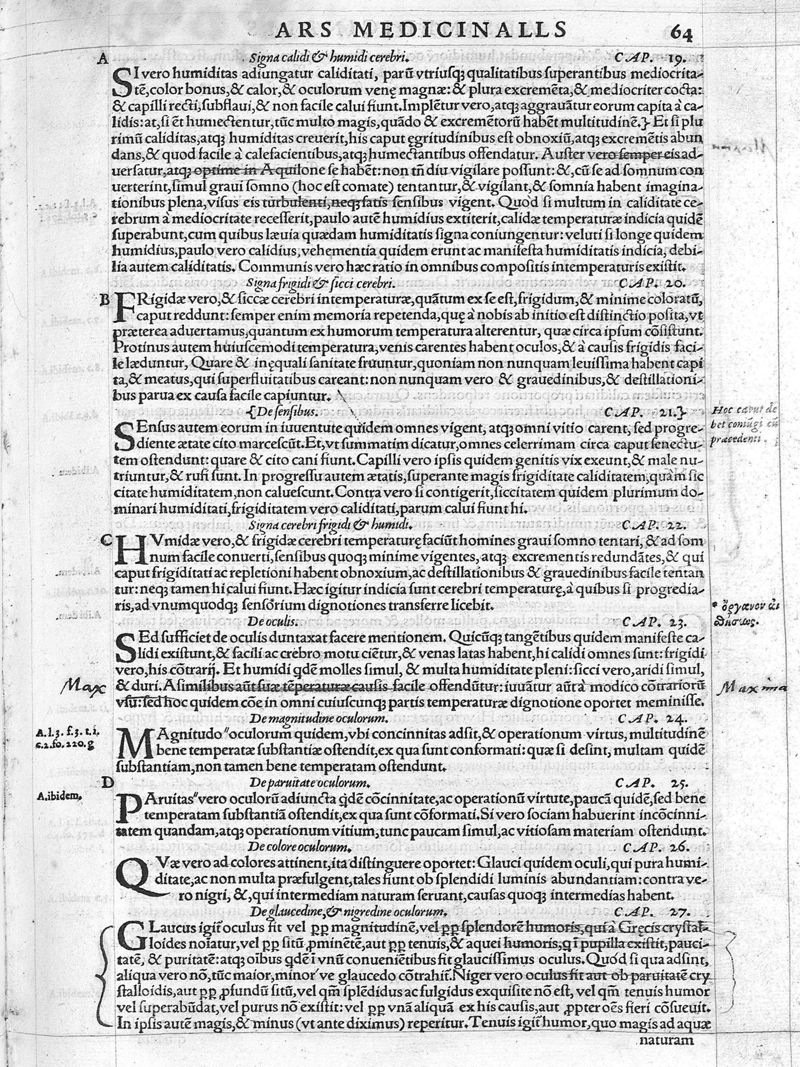 ARS MEDICINALLS 64
A Signa calidi & humidi cerebri. CAP. 19.
SI vero humiditas adiungatur caliditati, parũ vtriusq; qualitatibus superantibus mediocrita-
tẽ, color bonus, & calor, & oculorum venę magnæ: & plura excremẽta, & mediocriter cocta:
& capilli recti, subflaui, & non facile calui fiunt. Implẽtur vero, atq; aggrauãtur eorum capita à ca-
lidis: at, si ẽt humectentur, tũc multo magis, quãdo & excremẽtorũ habẽt multitudinẽ.} Et si plu
rimũ caliditas, atq; humiditas creuerit, his caput ęgritudinibus est obnoxiũ, atq; excremẽtis abun
dans, & quod facile à calefacientibus, atq; humectantibus offendatur. Auster vero semper eis ad-
uersatur, atq; optime in Aquilone se habẽt: non tñ diu vigilare possunt: &, cũ se ad somnum con
uerterint, simul graui somno (hoc est comate) tentantur, & vigilant, & somnia habent imagina-
tionibus plena, visus eis turbulenti, neq; satis sensibus vigent. Quod si multum in caliditate ce-
rebrum à mediocritate recesserit, paulo autẽ humidius extiterit, calidæ temperaturæ indicia quidẽ
superabunt, cum quibus læuia quædam humiditatis signa coniungentur: veluti si longe quidem
humidius, paulo vero calidius, vehementia quidem erunt ac manifesta humiditatis indicia, debi-
lia autem caliditatis. Communis vero hæc ratio in omnibus compositis intemperaturis existit.
Signa frigidi & sicci cerebri. CAP. 20.
B FRigidæ vero, & siccæ cerebri intemperaturæ, quãtum ex se est, frigidum, & minime coloratũ,
caput reddunt: semper enim memoria repetenda, quę à nobis ab initio est distinctio posita, vt
præterea aduertamus, quantum ex humorum temperatura alterentur, quæ circa ipsum cõsistunt.
Protinus autem huiuscemodi temperatura, venis carentes habent oculos, & à causis frigidis faci-
le læduntur, Quare & inęquali sanitate fruuntur, quoniam non nunquam leuissima habent capi
ta, & meatus, qui superfluitatibus careant: non nunquam vero & grauedinibus, & destillationi-
bus parua ex causa facile capiuntur.
{De sensibus. CAP. 21.}
Hoc caput de
bet coniũgi cũ
præcedenti.
SEnsus autem eorum in iuuentute quidem omnes vigent, atq; omni vitio carent, sed progre-
diente ætate cito marcescũt. Et, vt summatim dicatur, omnes celerrimam circa caput senectu-
tem ostendunt: quare & cito cani fiunt. Capilli vero ipsis quidem genitis vix exeunt, & male nu-
triuntur, & rufi sunt. In progressu autem ætatis, superante magis frigiditate caliditatem, quàm sic
citate humiditatem, non caluescunt. Contra vero si contigerit, siccitatem quidem plurimum do-
minari humiditati, frigiditatem vero caliditati, parum calui fiunt hi.
Signa cerebri frigidi & humidi. CAP. 22.
C HVmidæ vero, & frigidæ cerebri temperaturę faciũt homines graui somno tentari, & ad som
num facile conuerti, sensibus quoq; minime vigentes, atq; excrementis redundãtes, & qui
caput frigiditati ac repletioni habent obnoxium, ac destillationibus & grauedinibus facile tentan
tur: neq; tamen hi calui fiunt. Hæc igitur indicia sunt cerebri temperaturę, à quibus si progredia-
ris, ad vnumquodq; sensorium dignotiones transferre licebit.
* ὄργανον αἰ
σθήσεως.
De oculis. CAP. 23.
SEd sufficiet de oculis duntaxat facere mentionem. Quicũq; tangẽtibus quidem manifeste ca-
lidi existunt, & facili ac crebro motu ciẽtur, & venas latas habent, hi calidi omnes sunt: frigidi
vero, his cõtrarij. Et humidi qdẽ molles simul, & multa humiditate pleni: sicci vero, aridi simul,
Max & duri. A similibus aũt suæ tẽperaturæ causis facile offendũtur: iuuãtur aũt à modico cõtrariorũ Maxima
vsu: sed hoc quidem cõe in omni cuiuscunq; partis temperaturæ dignotione oportet meminisse.
De magnitudine oculorum. CAP. 24.
A.l.3. f.3. t.i.
c.2.fo.220.g
MAgnitudo oculorum quidem, vbi concinnitas adsit, & operationum virtus, multitudinẽ
bene temperatæ substantiæ ostendit, ex qua sunt conformati: quæ si desint, multam quidẽ
substantiam, non tamen bene temperatam ostendunt.
D De paruitate oculorum. CAP. 25.
A.ibidem.
PAruitas vero oculorũ adiuncta qdẽ cõcinnitate, ac operationũ virtute, paucã quidẽ, sed bene
temperatam substantiã ostendit, ex qua sunt cõformati. Si vero sociam habuerint incõcinni-
tatem quandam, atq; operationum vitium, tunc paucam simul, ac vitiosam materiam ostendunt.
De colore oculorum. CAP. 26.
QVæ vero ad colores attinent, ita distinguere oportet: Glauci quidem oculi, qui pura humi-
ditate, ac non multa præfulgent, tales fiunt ob splendidi luminis abundantiam: contra ve-
ro nigri, &, qui intermediam naturam seruant, causas quoq; intermedias habent.
De glaucedine, & nigredine oculorum. CAP. 27.
GLaucus igiť oculus fit vel ꝓp magnitudinẽ, vel ꝓp splendorẽ humoris, qui à Gręcis crystal-
loides noĩatur, vel ꝓp sitũ ꝓminẽtẽ, aut ꝓp tenuis, & aquei humoris, q ĩ pupilla existit, pauci-
tatẽ, & puritatẽ: atq; oĩbus qdẽ ĩ vnũ conueniẽtibus fit glaucissimus oculus. Quòd si qua adsint,
aliqua vero nõ, tũc maior, minor've glaucedo cõtrahiť. Niger vero oculus fit aut ob paruitatẽ cry
stalloidis, aut ꝓp ꝓfundũ sitũ, vel qm̃ splẽdidus ac fulgidus exquisite nõ est, vel qm̃ tenuis humor
vel superabũdat, vel purus nõ existit: vel ꝓp vnã aliquã ex his causis, aut ꝓpter oẽs fieri cõsueuit.
In ipsis autẽ magis, & minus (vt ante diximus) reperitur. Tenuis igiť humor, quo magis ad aquæ
naturam